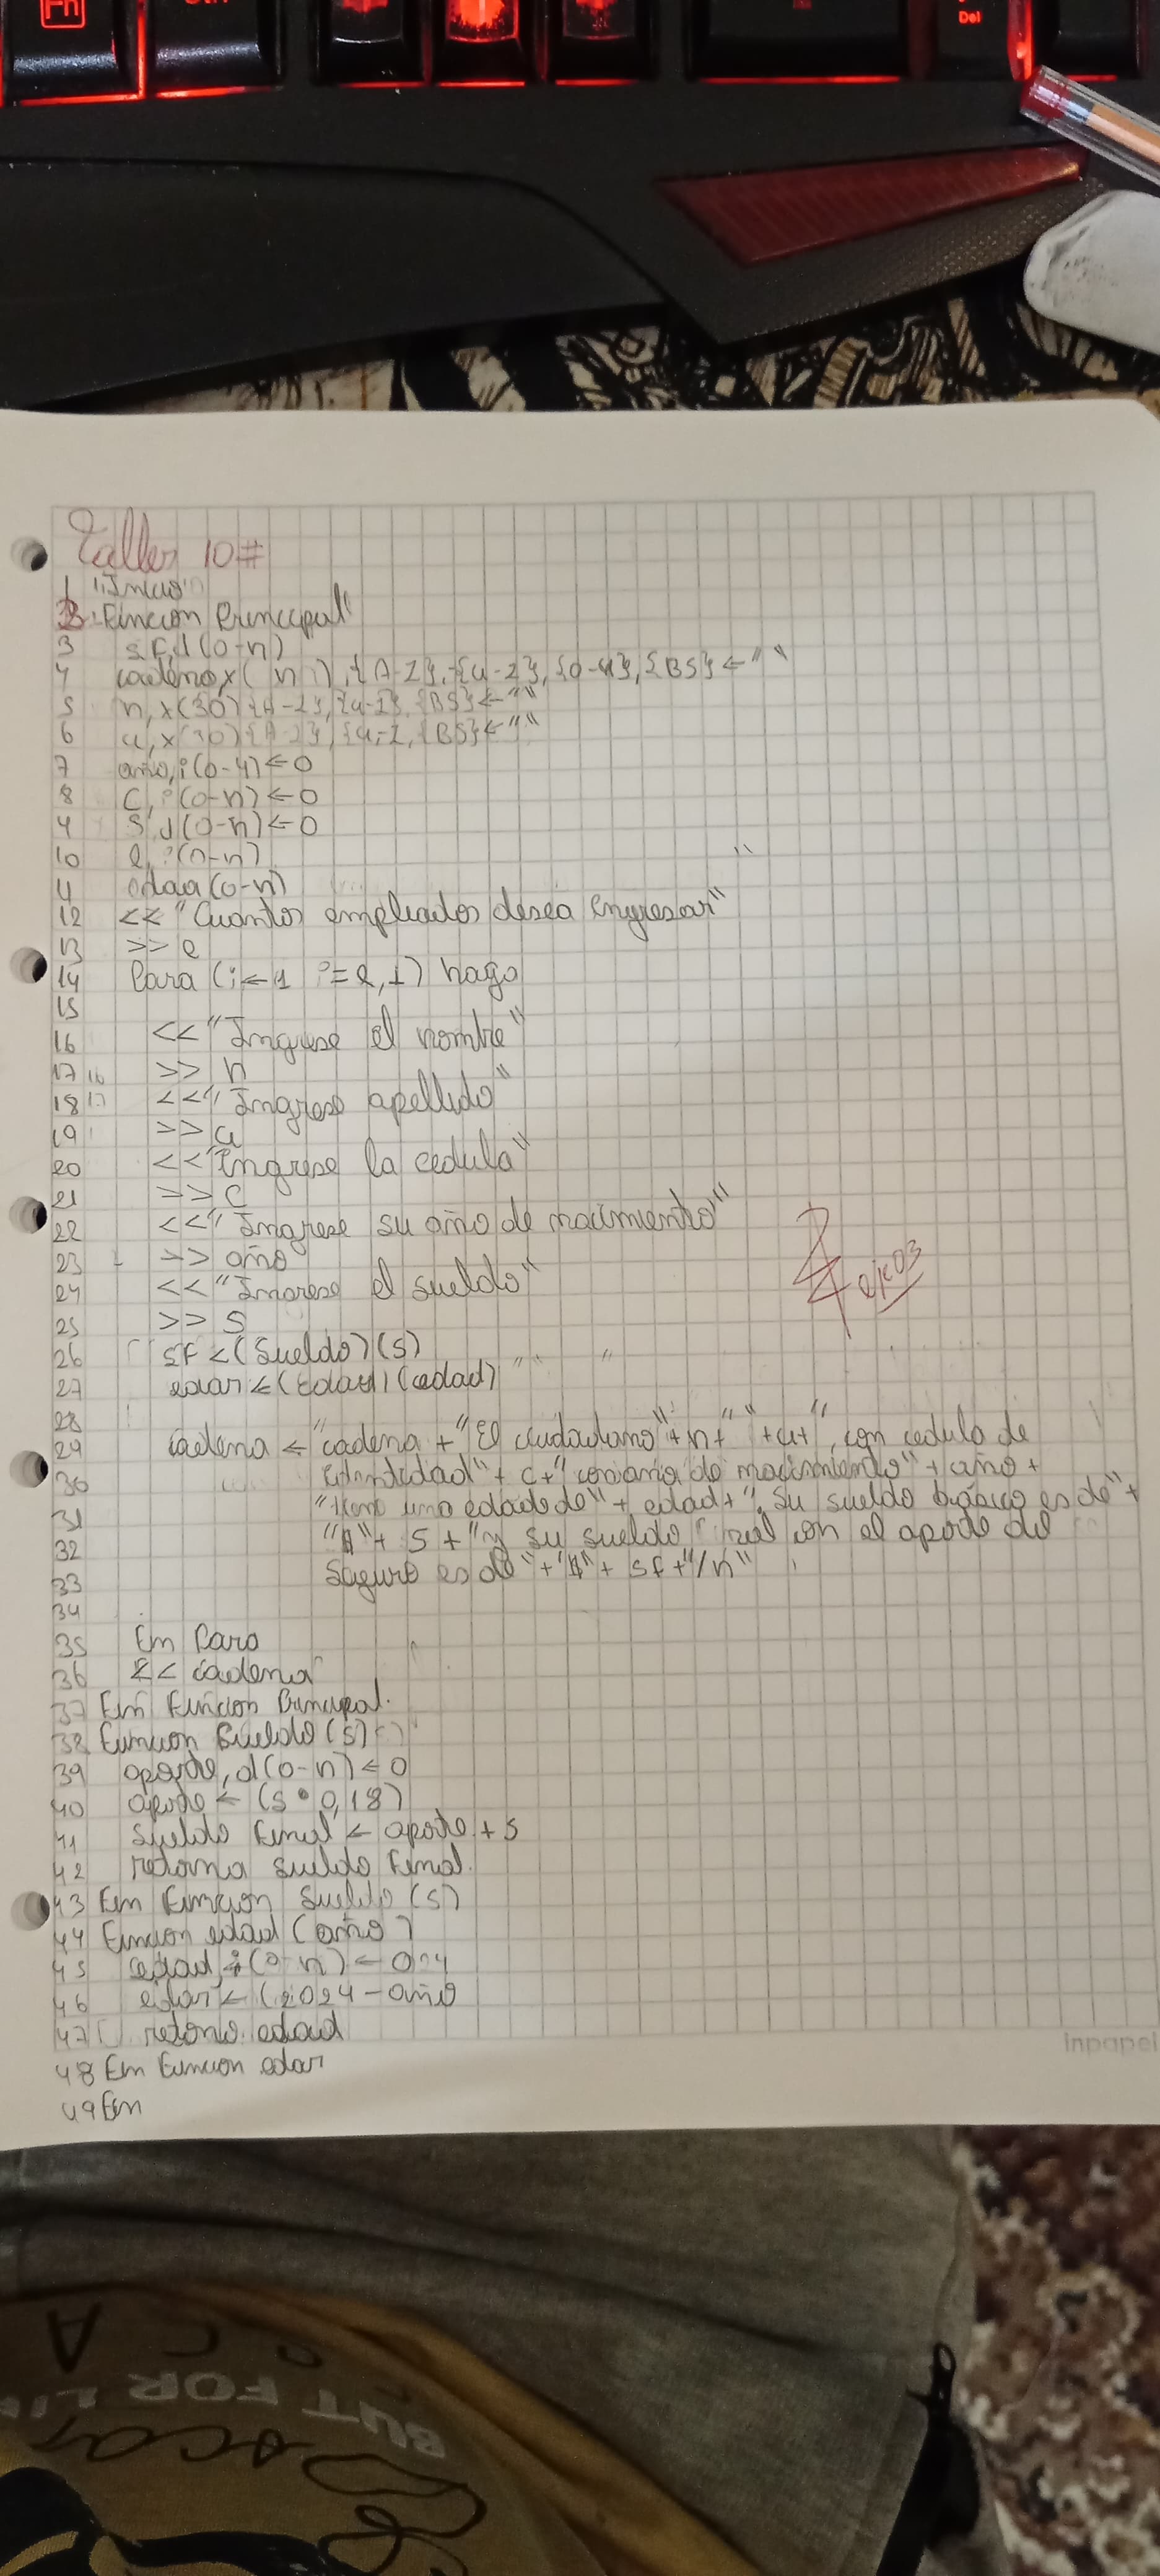 Del
Taller 10#
1 "Inicio"
2. Funcion Principal"
3 sf,d(0-n)
4 cadena,x(n),{A-Z},{a-z},{0-9},{BS}←" "
5 n,x(30){A-Z},{a-z},{BS}←" "
6 a,x(30){A-Z},{a-z,{BS}←" "
7 año,i(0-4)←0
8 C,i(0-n)←0
9 S,d(0-n)←0
10 e,i(0-n)
11 (0-n)
12 << "Cuantos empleados desea ingresar"
13 >> e
14 Para (i←1 i=e,1) hago
15
16 << "Ingrese el nombre"
17 16 >> n
18 17 << "Ingrese apellido"
19 >> a
20 << "Ingrese la cedula"
21 >> C
22 << "Ingrese su año de nacimiento"
23 >> año
24 << "Ingrese el sueldo"
ejr03
25 >> S
26 sf <(Sueldo)(s)
27 edad ≤(Edad)(edad)
28
29 cadena ← "cadena + "El ciudadano"+n+" "+a+", con cedula de
30 identidad"+ c+" con año de nacimiento"+ año +
31 "tiene una edad de"+ edad+", Su sueldo basico es de"+
32 "$"+ S + "y su sueldo real con el aporte del
33 Seguro es de"+"$"+ sf+"/n"
34
35 Fin Para
36 << cadena
37 Fin Funcion Principal.
38 Funcion Sueldo (s)
39 aporte, d(0-n)←0
40 aporte ← (s • 0,18)
41 Sueldo Final ← aporte + s
42 retorna sueldo Final.
43 Fin Funcion Sueldo (s)
44 Funcion edad (año)
45 edad, i(0-n) ←
46 edad ← (2024 - año
47 retorno edad
48 Fin Funcion edad
49 Fin
inpapel
BUT FOR